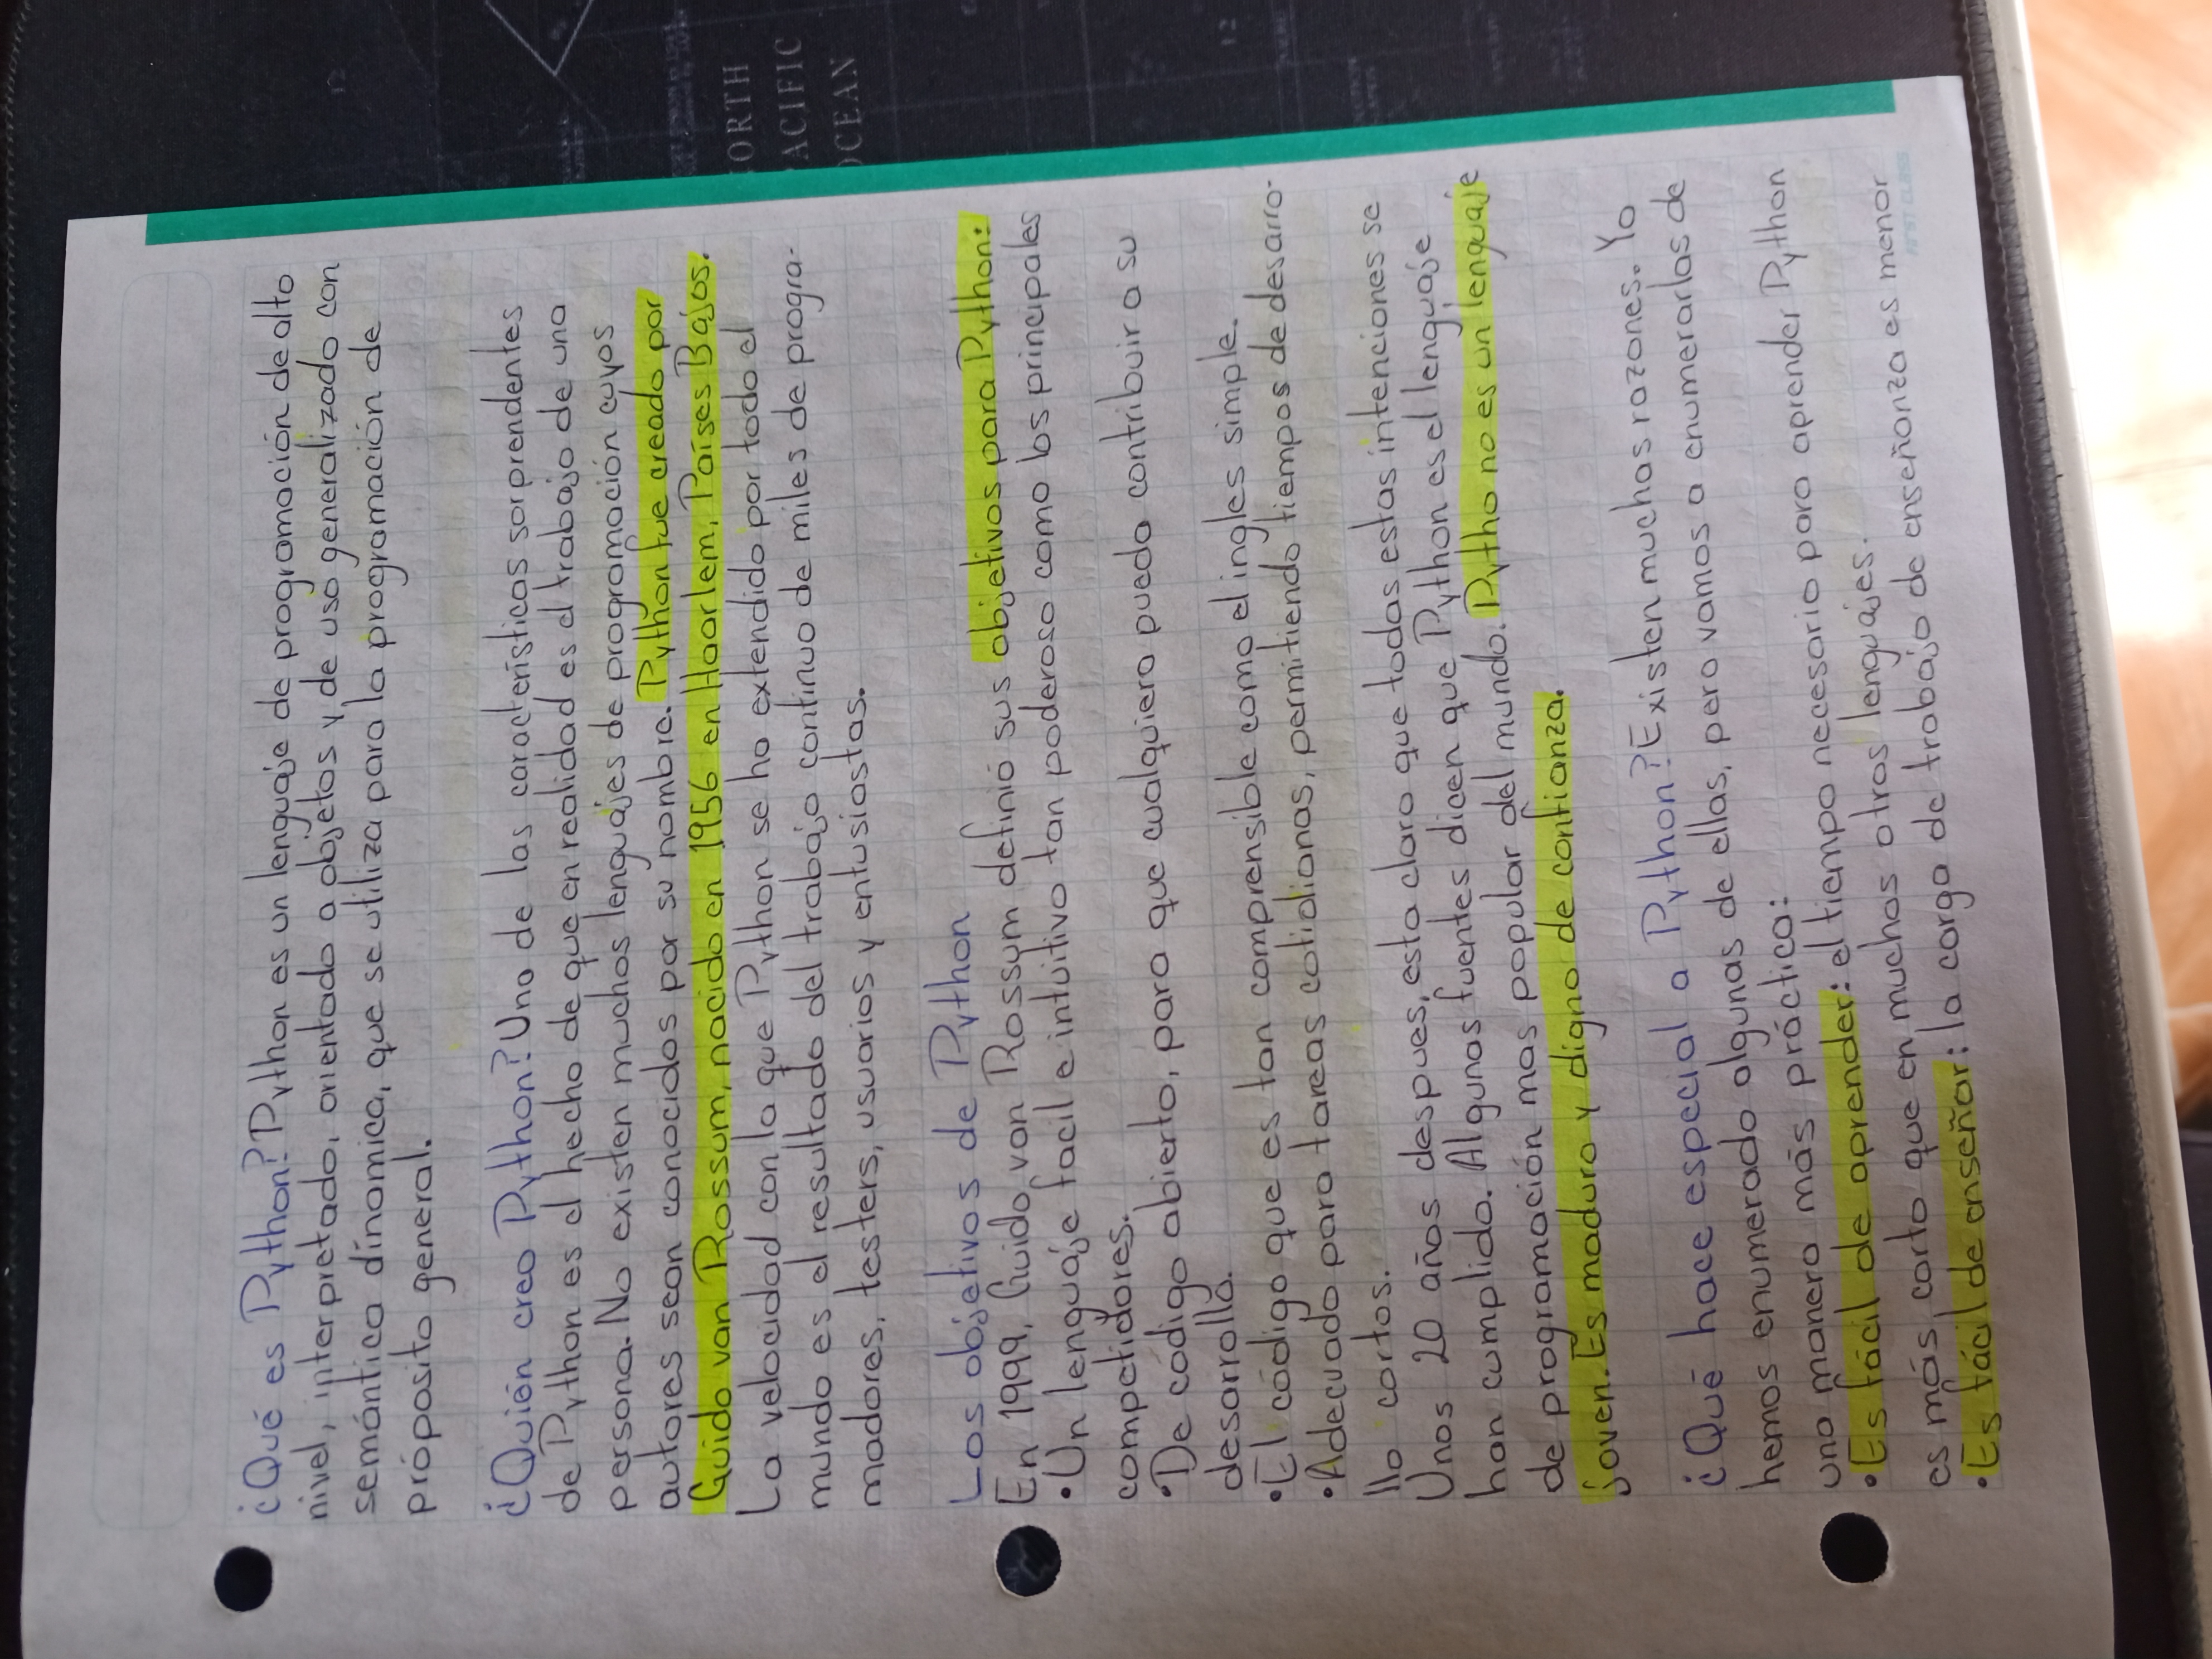 ¿Qué es Python? Python es un lenguaje de programación de alto
nivel, interpretado, orientado a objetos y de uso generalizado con
semántica dínamica, que se utiliza para la programación de
próposito general.
¿Quién creo Python? Una de las características sorprendentes
de Python es el hecho de que en realidad es el trabajo de una
persona. No existen muchos lenguajes de programación cuyos
autores sean conocidos por su nombre. Python fue creado por
Guido van Rossum, nacido en 1956 en Haarlem, Países Bajos.
La velocidad con la que Python se ha extendido por todo el
mundo es el resultado del trabajo continuo de miles de progra-
madores, testers, usuarios y entusiastas.
Los objetivos de Python
En 1999, Guido van Rossum definió sus objetivos para Python:
• Un lenguaje facil e intuitivo tan poderoso como los principales
competidores.
• De código abierto, para que cualquiera pueda contribuir a su
desarrollo.
• El código que es tan comprensible como el ingles simple.
• Adecuado para tareas cotidianas, permitiendo tiempos de desarro-
llo cortos.
Unos 20 años despues, esta claro que todas estas intenciones se
han cumplido. Algunas fuentes dicen que Python es el lenguaje
de programación mas popular del mundo. Pytho no es un lenguaje
joven. Es maduro y digno de confianza.
¿Qué hace especial a Python? Existen muchas razones. Ya
hemos enumerado algunas de ellas, pero vamos a enumerarlas de
una manera más práctica:
• Es fácil de aprender: el tiempo necesario para aprender Python
es más corto que en muchos otros lenguajes.
• Es fácil de enseñar: la carga de trabajo de enseñanza es menor
FIRST CLASS
12
NORTH
PACIFIC
OCEAN
12